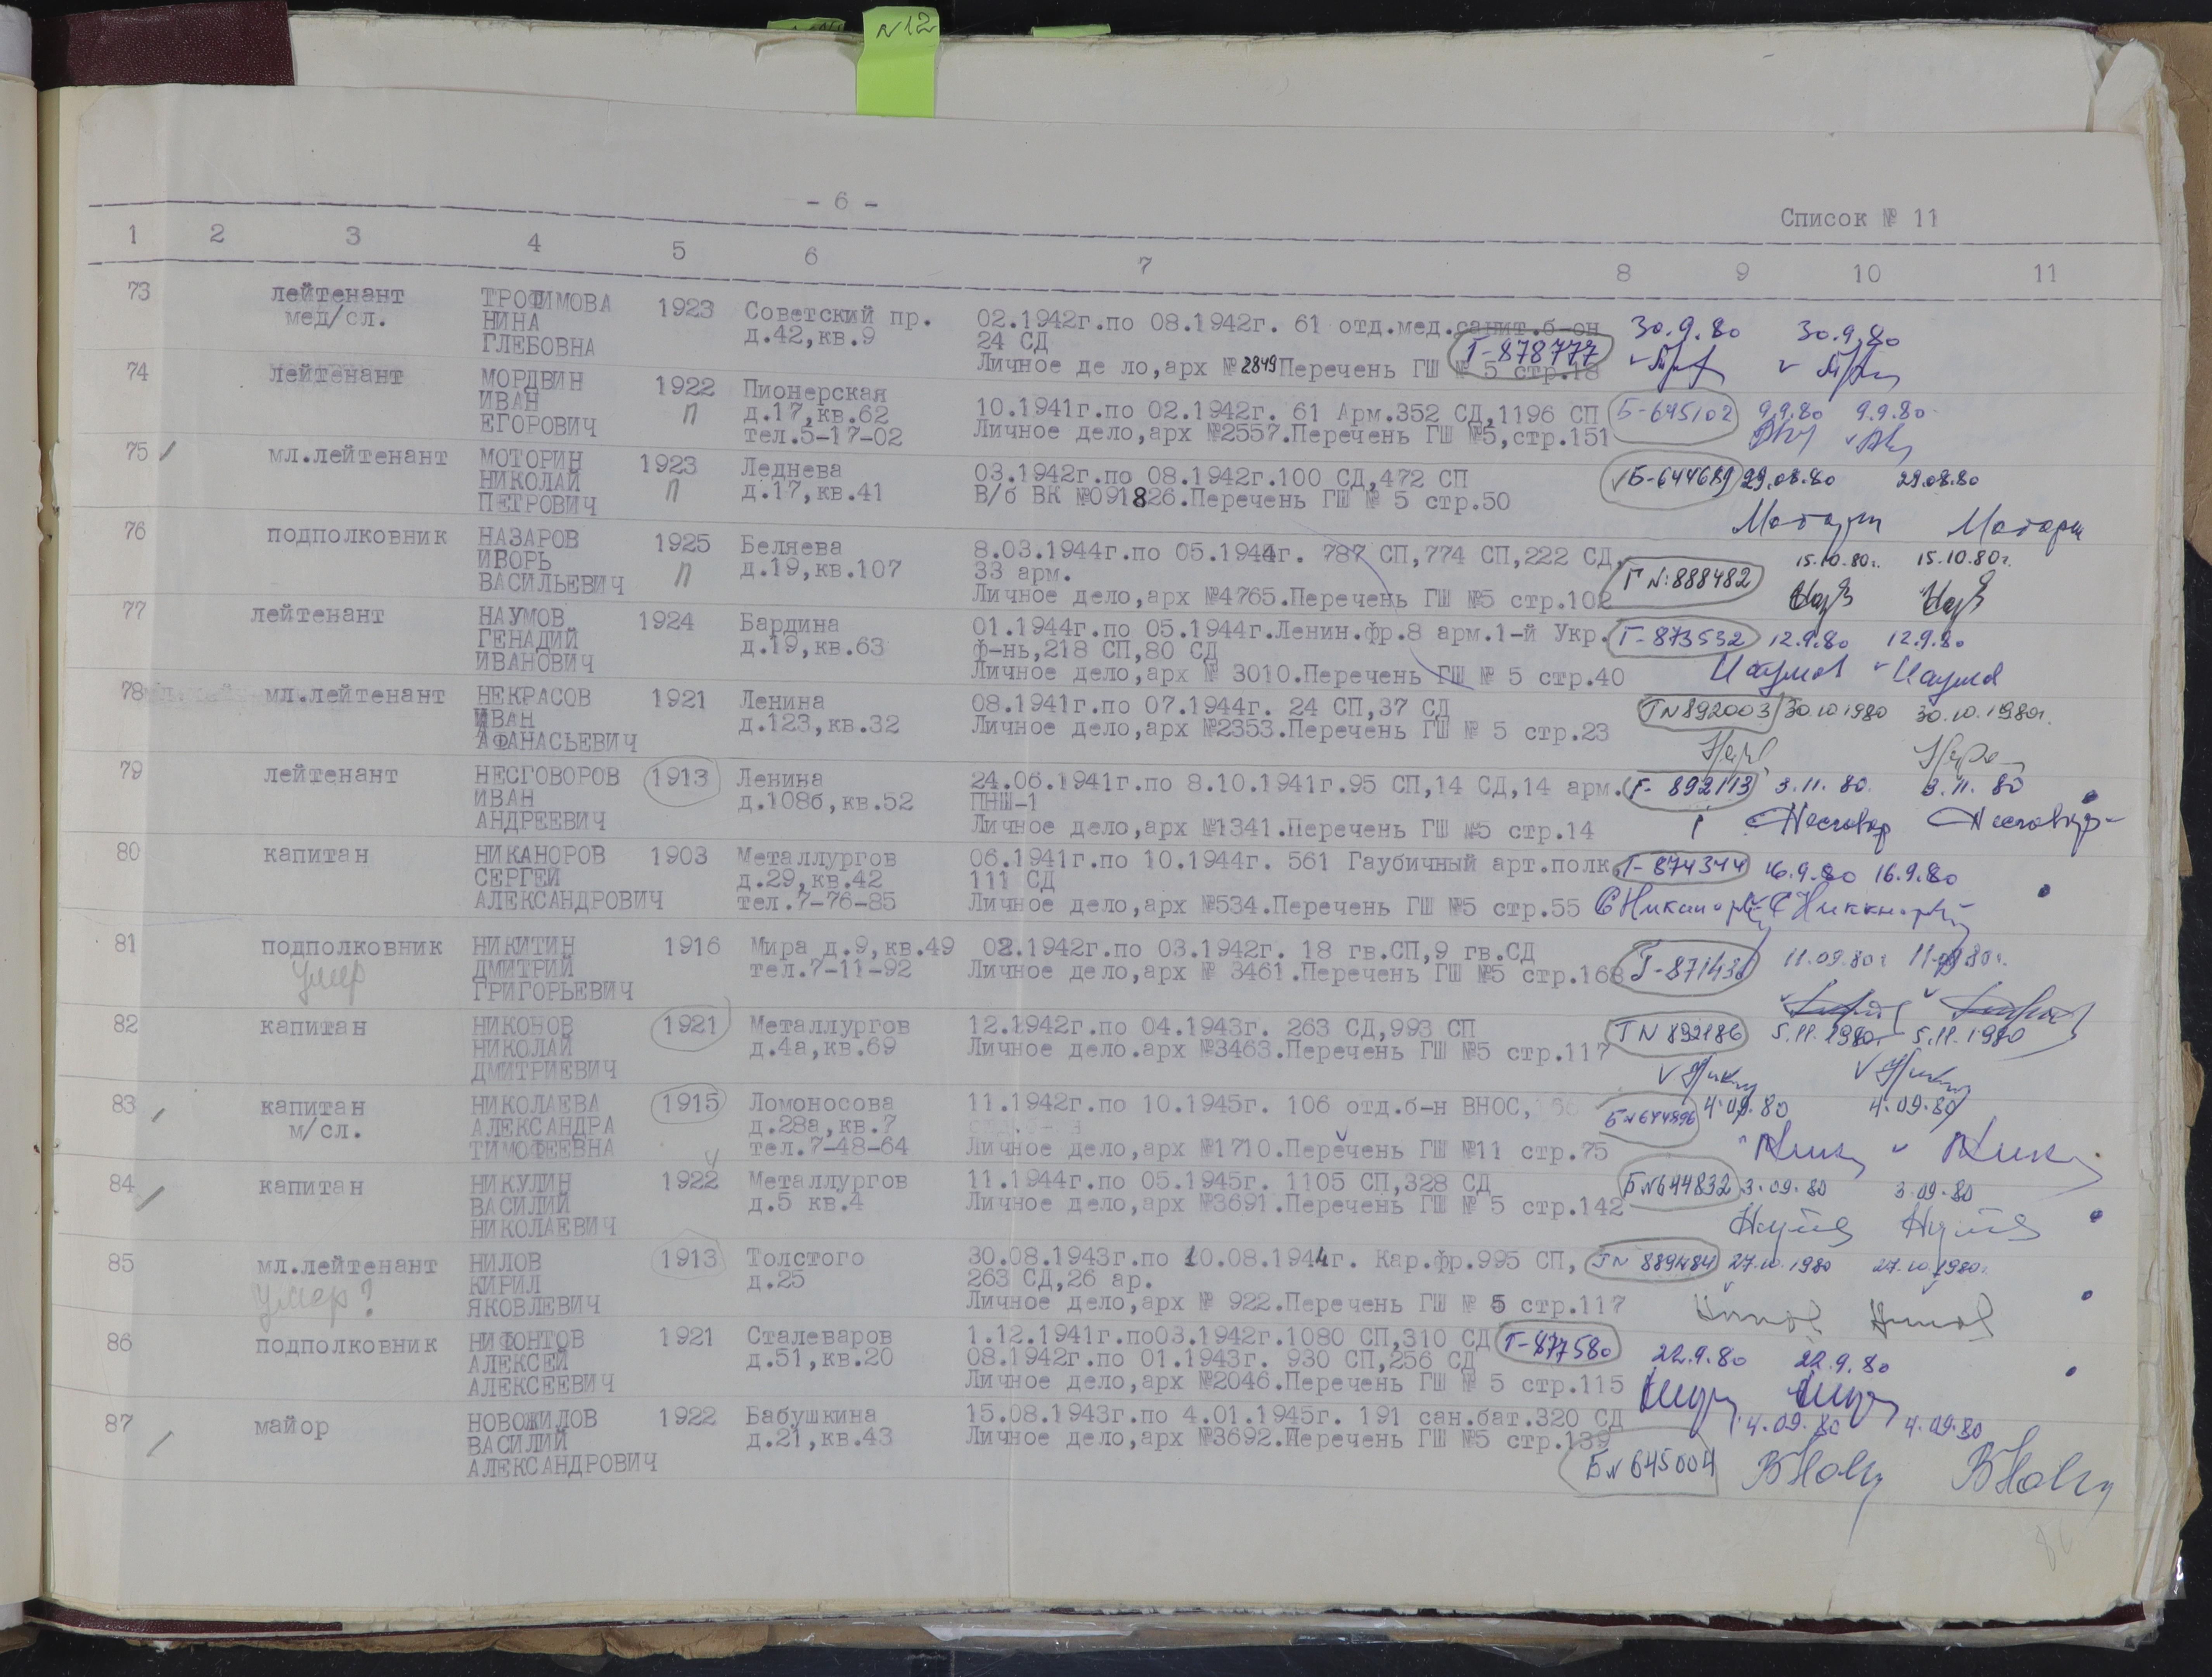 N12
- 6 -
Список № 11
1 2 3 4 5 6 7 8 9 10 11
73 лейтенант ТРОФИМОВА 1923 Советский пр. 02.1942г.по 08.1942г. 61 отд.мед.санит.б-он 30.9.80 30.9.80
мед/сл. НИНА д.42,кв.9 24 СД Г-878777
ГЛЕБОВНА Личное де ло,арх №2849Перечень ГШ № 5 стр.18
74 лейтенант МОРДВИН 1922 Пионерская 10.1941г.по 02.1942г. 61 Арм.352 СД,1196 СП Б-645102 9.9.80 9.9.80
ИВАН П д.17,кв.62 Личное дело,арх №2557.Перечень ГШ №5,стр.151
ЕГОРОВИЧ тел.5-17-02
75 мл.лейтенант МОТОРИН 1923 Леднева 03.1942г.по 08.1942г.100 СД,472 СП Б-644689 29.08.80 29.08.80
НИКОЛАЙ П д.17,кв.41 В/б ВК №091826.Перечень ГШ № 5 стр.50
ПЕТРОВИЧ
76 подполковник НАЗАРОВ 1925 Беляева 8.03.1944г.по 05.1944г. 787 СП,774 СП,222 СД, 15.10.80г. 15.10.80г.
ИВОРЬ П д.19,кв.107 33 арм. Г N:888482
ВАСИЛЬЕВИЧ Личное дело,арх №4765.Перечень ГШ №5 стр.102
77 лейтенант НАУМОВ 1924 Бардина 01.1944г.по 05.1944г.Ленин.фр.8 арм.1-й Укр. Г-873532 12.9.80 12.9.80
ГЕНАДИЙ д.19,кв.63 ф-нь,218 СП,80 СД
ИВАНОВИЧ Личное дело,арх № 3010.Перечень ГШ № 5 стр.40 Наумов
78 мл.лейтенант НЕКРАСОВ 1921 Ленина 08.1941г.по 07.1944г. 24 СП,37 СД ГN892003 30.10 1980 30.10.1980г.
ИВАН д.123,кв.32 Личное дело,арх №2353.Перечень ГШ № 5 стр.23
АФАНАСЬЕВИЧ
79 лейтенант НЕСГОВОРОВ 1913 Ленина 24.06.1941г.по 8.10.1941г.95 СП,14 СД,14 арм. Г-892113 3.11.80. 3.11.80
ИВАН д.108б,кв.52 ПНШ-1
АНДРЕЕВИЧ Личное дело,арх №1341.Перечень ГШ №5 стр.14
80 капитан НИКАНОРОВ 1903 Металлургов 06.1941г.по 10.1944г. 561 Гаубичный арт.полк Г-874344 16.9.80 16.9.80
СЕРГЕЙ д.29,кв.42 111 СД
АЛЕКСАНДРОВИЧ тел.7-76-85 Личное дело,арх №534.Перечень ГШ №5 стр.55
81 подполковник НИКИТИН 1916 Мира д.9,кв.49 02.1942г.по 03.1942г. 18 гв.СП,9 гв.СД 11.09.80г 11.09.80г.
умер ДМИТРИЙ тел.7-11-92 Личное дело,арх № 3461.Перечень ГШ №5 стр.168
ГРИГОРЬЕВИЧ
82 капитан НИКОНОВ 1921 Металлургов 12.1942г.по 04.1943г. 263 СД,993 СП ГN 892186 5.11.1980г. 5.11.1980
НИКОЛАЙ д.4а,кв.69 Личное дело.арх №3463.Перечень ГШ №5 стр.117
ДМИТРИЕВИЧ
83 капитан НИКОЛАЕВА 1915 Ломоносова 11.1942г.по 10.1945г. 106 отд.б-н ВНОС, БN644896 4.09.80 4.09.80
м/сл. АЛЕКСАНДРА д.28а,кв.7
ТИМОФЕЕВНА тел.7-48-64 Личное дело,арх №1710.Перечень ГШ №11 стр.75
84 капитан НИКУЛИН 1922 Металлургов 11.1944г.по 05.1945г. 1105 СП,328 СД БN644832 3.09.80 3.09.80
ВАСИЛИЙ д.5 кв.4 Личное дело,арх №3691.Перечень ГШ № 5 стр.142
НИКОЛАЕВИЧ
85 мл.лейтенант НИЛОВ 1913 Толстого 30.08.1943г.по 10.08.1944г. Кар.фр.995 СП, ГN 889484 27.10.1980 27.10.1980г.
умер? КИРИЛ д.25 263 СД,26 ар.
ЯКОВЛЕВИЧ Личное дело,арх № 922.Перечень ГШ № 5 стр.117
86 подполковник НИФОНТОВ 1921 Сталеваров 1.12.1941г.по03.1942г.1080 СП,310 СД Г-877580 22.9.80 22.9.80
АЛЕКСЕЙ д.51,кв.20 08.1942г.по 01.1943г. 930 СП,256 СД
АЛЕКСЕЕВИЧ Личное дело,арх №2046.Перечень ГШ № 5 стр.115
87 майор НОВОЖИЛОВ 1922 Бабушкина 15.08.1943г.по 4.01.1945г. 191 сан.бат.320 СД 4.09.80 4.09.80
ВАСИЛИЙ д.21,кв.43 Личное дело,арх №3692.Перечень ГШ №5 стр.139
АЛЕКСАНДРОВИЧ БN 645004